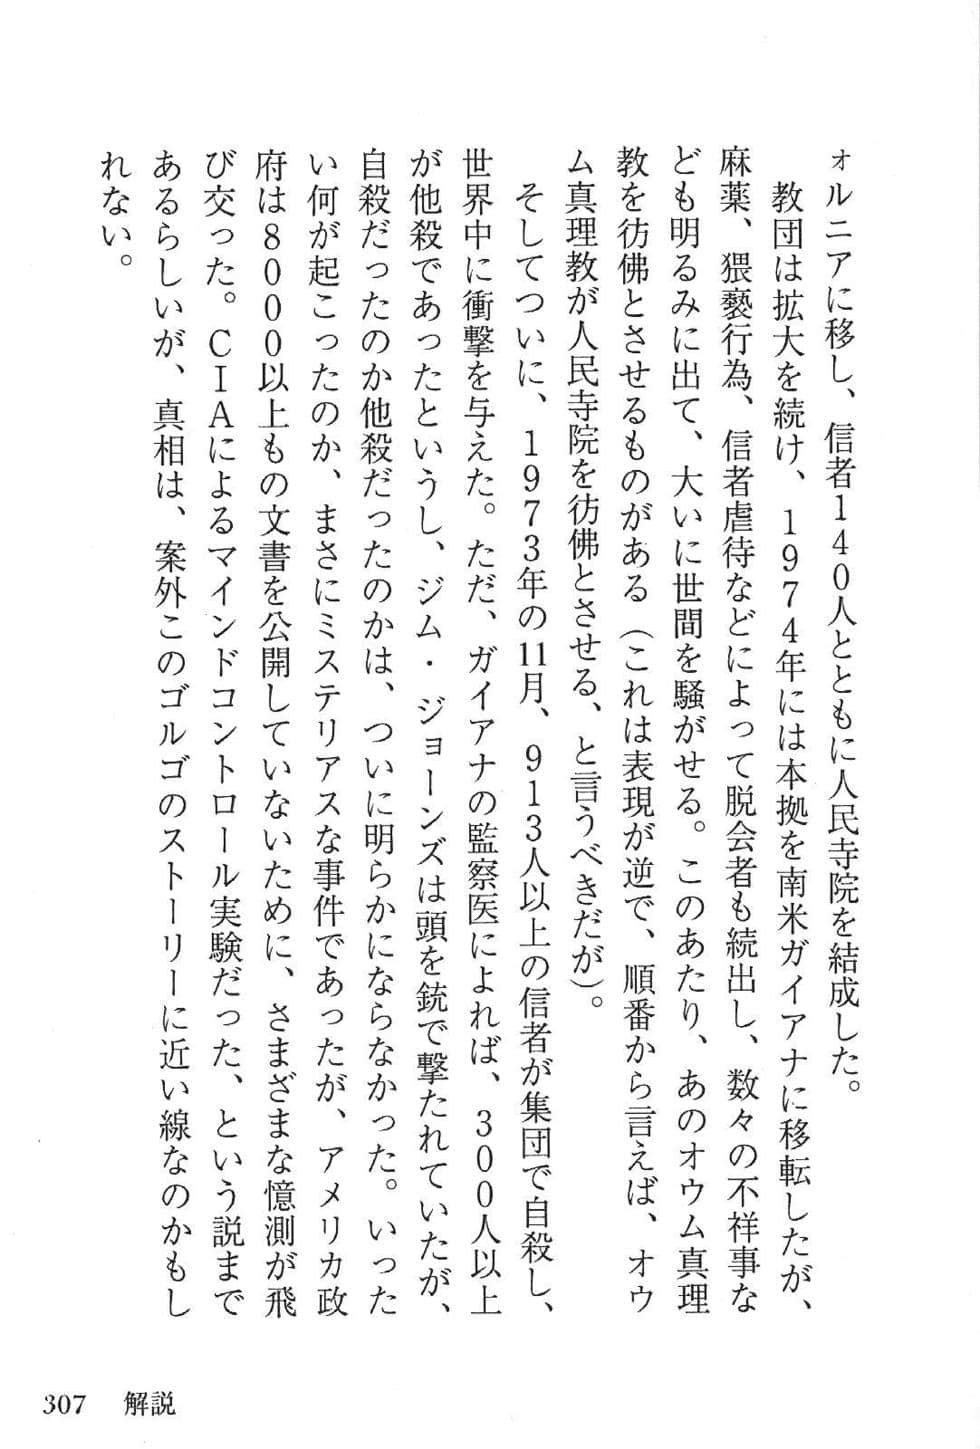 ォルニアに移し、信者140人とともに人民寺院を結成した。
教団は拡大を続け、1974年には本拠を南米ガイアナに移転したが、
麻薬、猥褻行為、信者虐待などによって脱会者も続出し、数々の不祥事な
ども明るみに出て、大いに世間を騒がせる。このあたり、あのオウム真理
教を彷佛とさせるものがある（これは表現が逆で、順番から言えば、オウ
ム真理教が人民寺院を彷佛とさせる、と言うべきだが）。
そしてついに、1973年の11月、913人以上の信者が集団で自殺し、
世界中に衝撃を与えた。ただ、ガイアナの監察医によれば、300人以上
が他殺であったというし、ジム・ジョーンズは頭を銃で撃たれていたが、
自殺だったのか他殺だったのかは、ついに明らかにならなかった。いった
い何が起こったのか、まさにミステリアスな事件であったが、アメリカ政
府は8000以上もの文書を公開していないために、さまざまな憶測が飛
び交った。CIAによるマインドコントロール実験だった、という説まで
あるらしいが、真相は、案外このゴルゴのストーリーに近い線なのかもし
れない。
307 解説